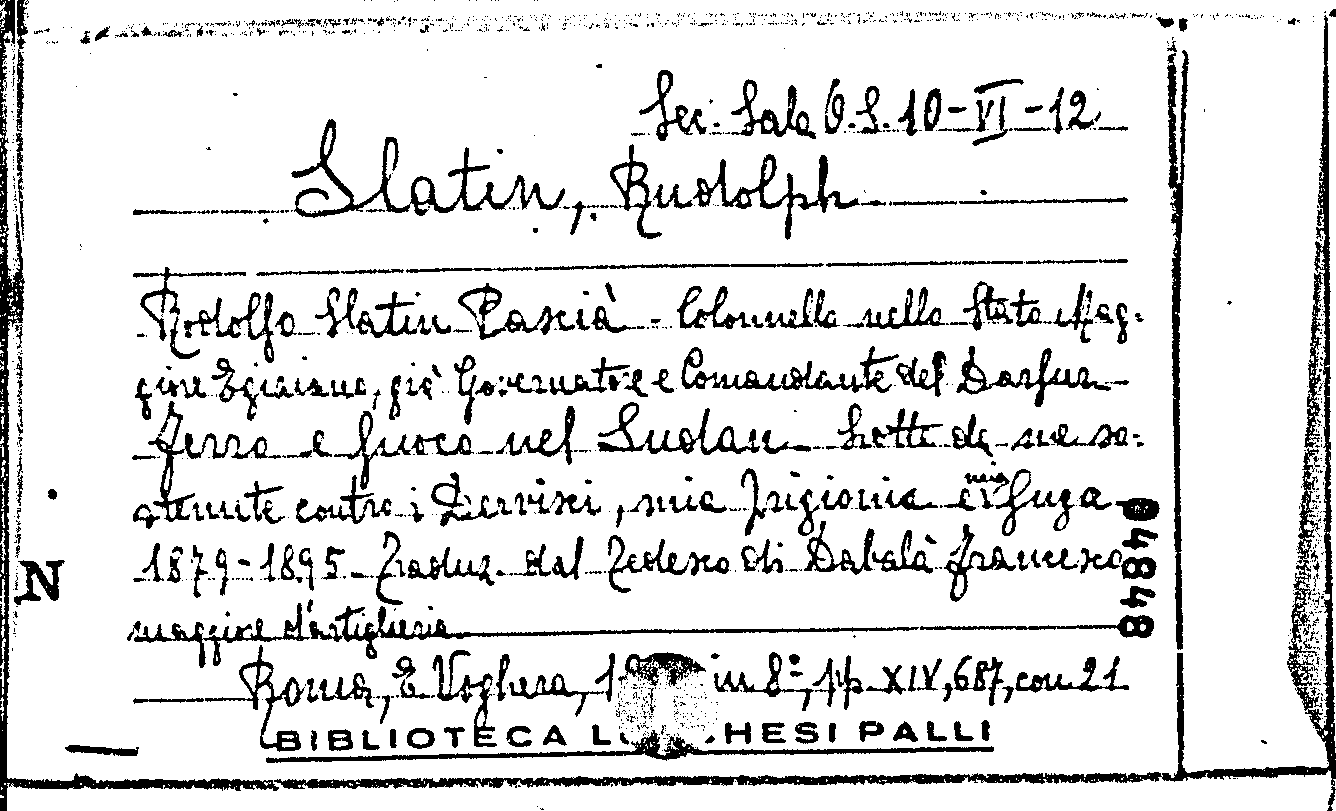 Sec. Sala O.S. 10-VI-12
Slatin, Rudolph
Rodolfo Slatin Pascià - Colonnello nello Stato Mag-
giore Egiziano, già Governatore e Comandante del Darfur
Ferro e fuoco nel Sudan - Lotte da me so-
stenute contro i Dervisci, mia prigionia e mia fuga
1879-1895 - Traduz. dal Tedesco di Dabalà Francesco
maggiore d'artiglieria
Roma, E Voghera, in 8°, pp XIV, 687, con 21
BIBLIOTECA PALLI
N
04848